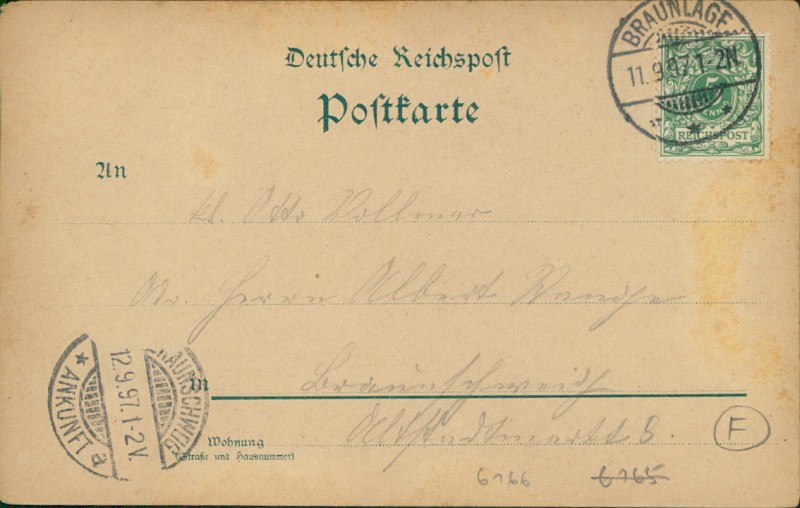 Deutsche Reichspost
Postkarte
BRAUNLAGE
11.9.97.1-2N.
5
REICHSPOST
An
Otto Vollmer
Adr. Herrn Albert
in Braunschweig
Altstadtmarkt 8.
Wohnung
(Straße und Hausnummer)
BRAUNSCHWEIG
12.9.97.1-2V.
* ANKUNFT a
F
6166 6165